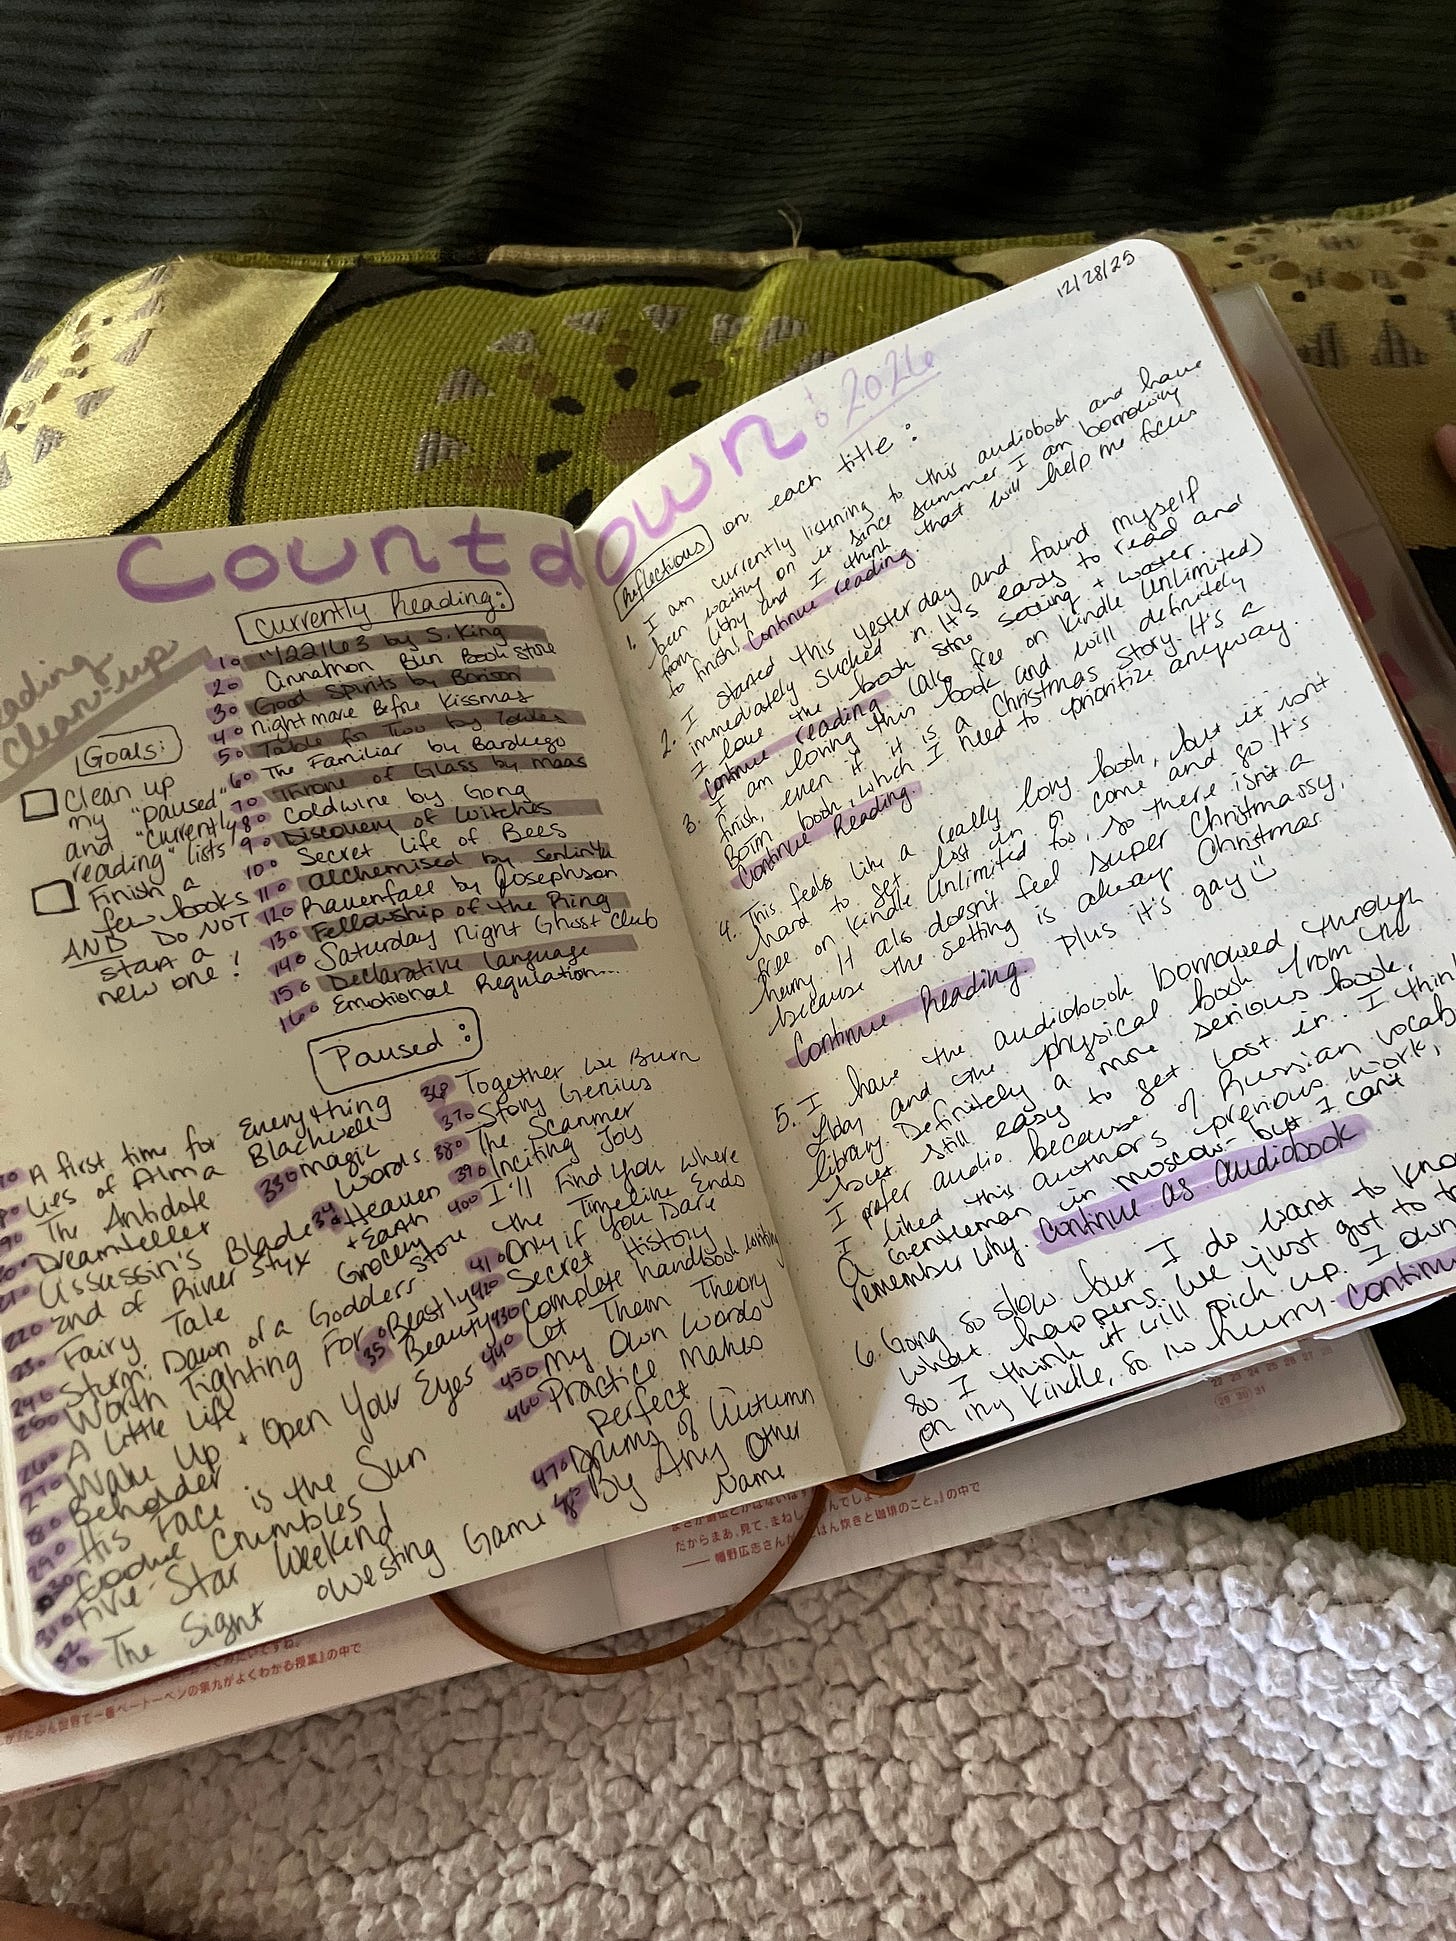 12/28/25
Countdown to 2026
Reading
Clean-up
Goals:
Clean up
my "paused"
and "currently
reading" lists
Finish a
few books
AND DO NOT
start a
new one!
Currently Reading:
1. 11/22/63 by S. King
2. Cinnamon Bun Book Store
3. Good Spirits by Borison
4. Nightmare Before Kissmas
5. Table for Two by Towles
6. The Familiar by Bardugo
7. Throne of Glass by Maas
8. Coldwire by Gong
9. Discovery of Witches
10. Secret Life of Bees
11. Alchemised by SenLinYu
12. Ravenfall by Josephson
13. Fellowship of the Ring
14. Saturday Night Ghost Club
15. Declarative Language
16. Emotional Regulation...
Paused:
A first time for Everything
Lies of Alma Blackwell
The Antidote
Dreamteller
Assassin's Blade
22. End of River Styx
23. Fairy Tale
24. Sturm: Dawn of a Goddless
25. Worth Fighting For
26. A Little Life
27. Wake Up + Open Your Eyes
28. Beholder
29. His Face is the Sun
30. Cookie Crumbles
31. Five-Star Weekend
32. The Sight
33. Magic
Words
34. Heaven
+ Earth
Grocery
Store
35. Beastly
Beauty
36. Together We Burn
37. Story Genius
38. The Scanner
39. Inciting Joy
40. I'll Find You Where
the Timeline Ends
41. Only if You Dare
42. Secret History
43. Complete handbook
44. Let Them Theory
45. My Own Words
46. Practice Makes
Perfect
47. Drums of Autumn
48. By Any Other
Name
Westing Game
Reflections on each title:
1. I am currently listening to this audiobook and have
been waiting on it since summer. I am borrowing
from Libby and I think that will help me focus
to finish. Continue reading
2. I started this yesterday and found myself
immediately sucked in. It's easy to read and
I love the book store setting + water.
Continue reading (also free on Kindle Unlimited)
3. I am loving this book and will definitely
finish, even if it is a Christmas story. It's a
BOTM book, which I need to prioritize anyway.
Continue Reading.
4. This feels like a really long book, but it isn't
hard to get lost in or come and go. It's
free on Kindle Unlimited too, so there isn't a
hurry. It also doesn't feel super Christmassy,
because the setting is always Christmas
Plus it's gay
Continue Reading.
5. I have the audiobook borrowed through
Libby and the physical book from the
library. Definitely a more serious book,
but still easy to get lost in. I think
I prefer audio because of Russian vocab
I liked this author's previous work,
A Gentleman in Moscow but I can't
remember why. Continue as audiobook
6. Going so slow but I do want to know
what happens. We just got to
so I think it will pick up. I own
on my Kindle, so no hurry. Continue
22 23 24 25 26 27 28
29 30 31
だからまあ、見て、まねし
『ごはん炊きと珈琲のこと。』の中で
『たぶん世界で一番ベートーベンの第九がよくわかる授業』の中で